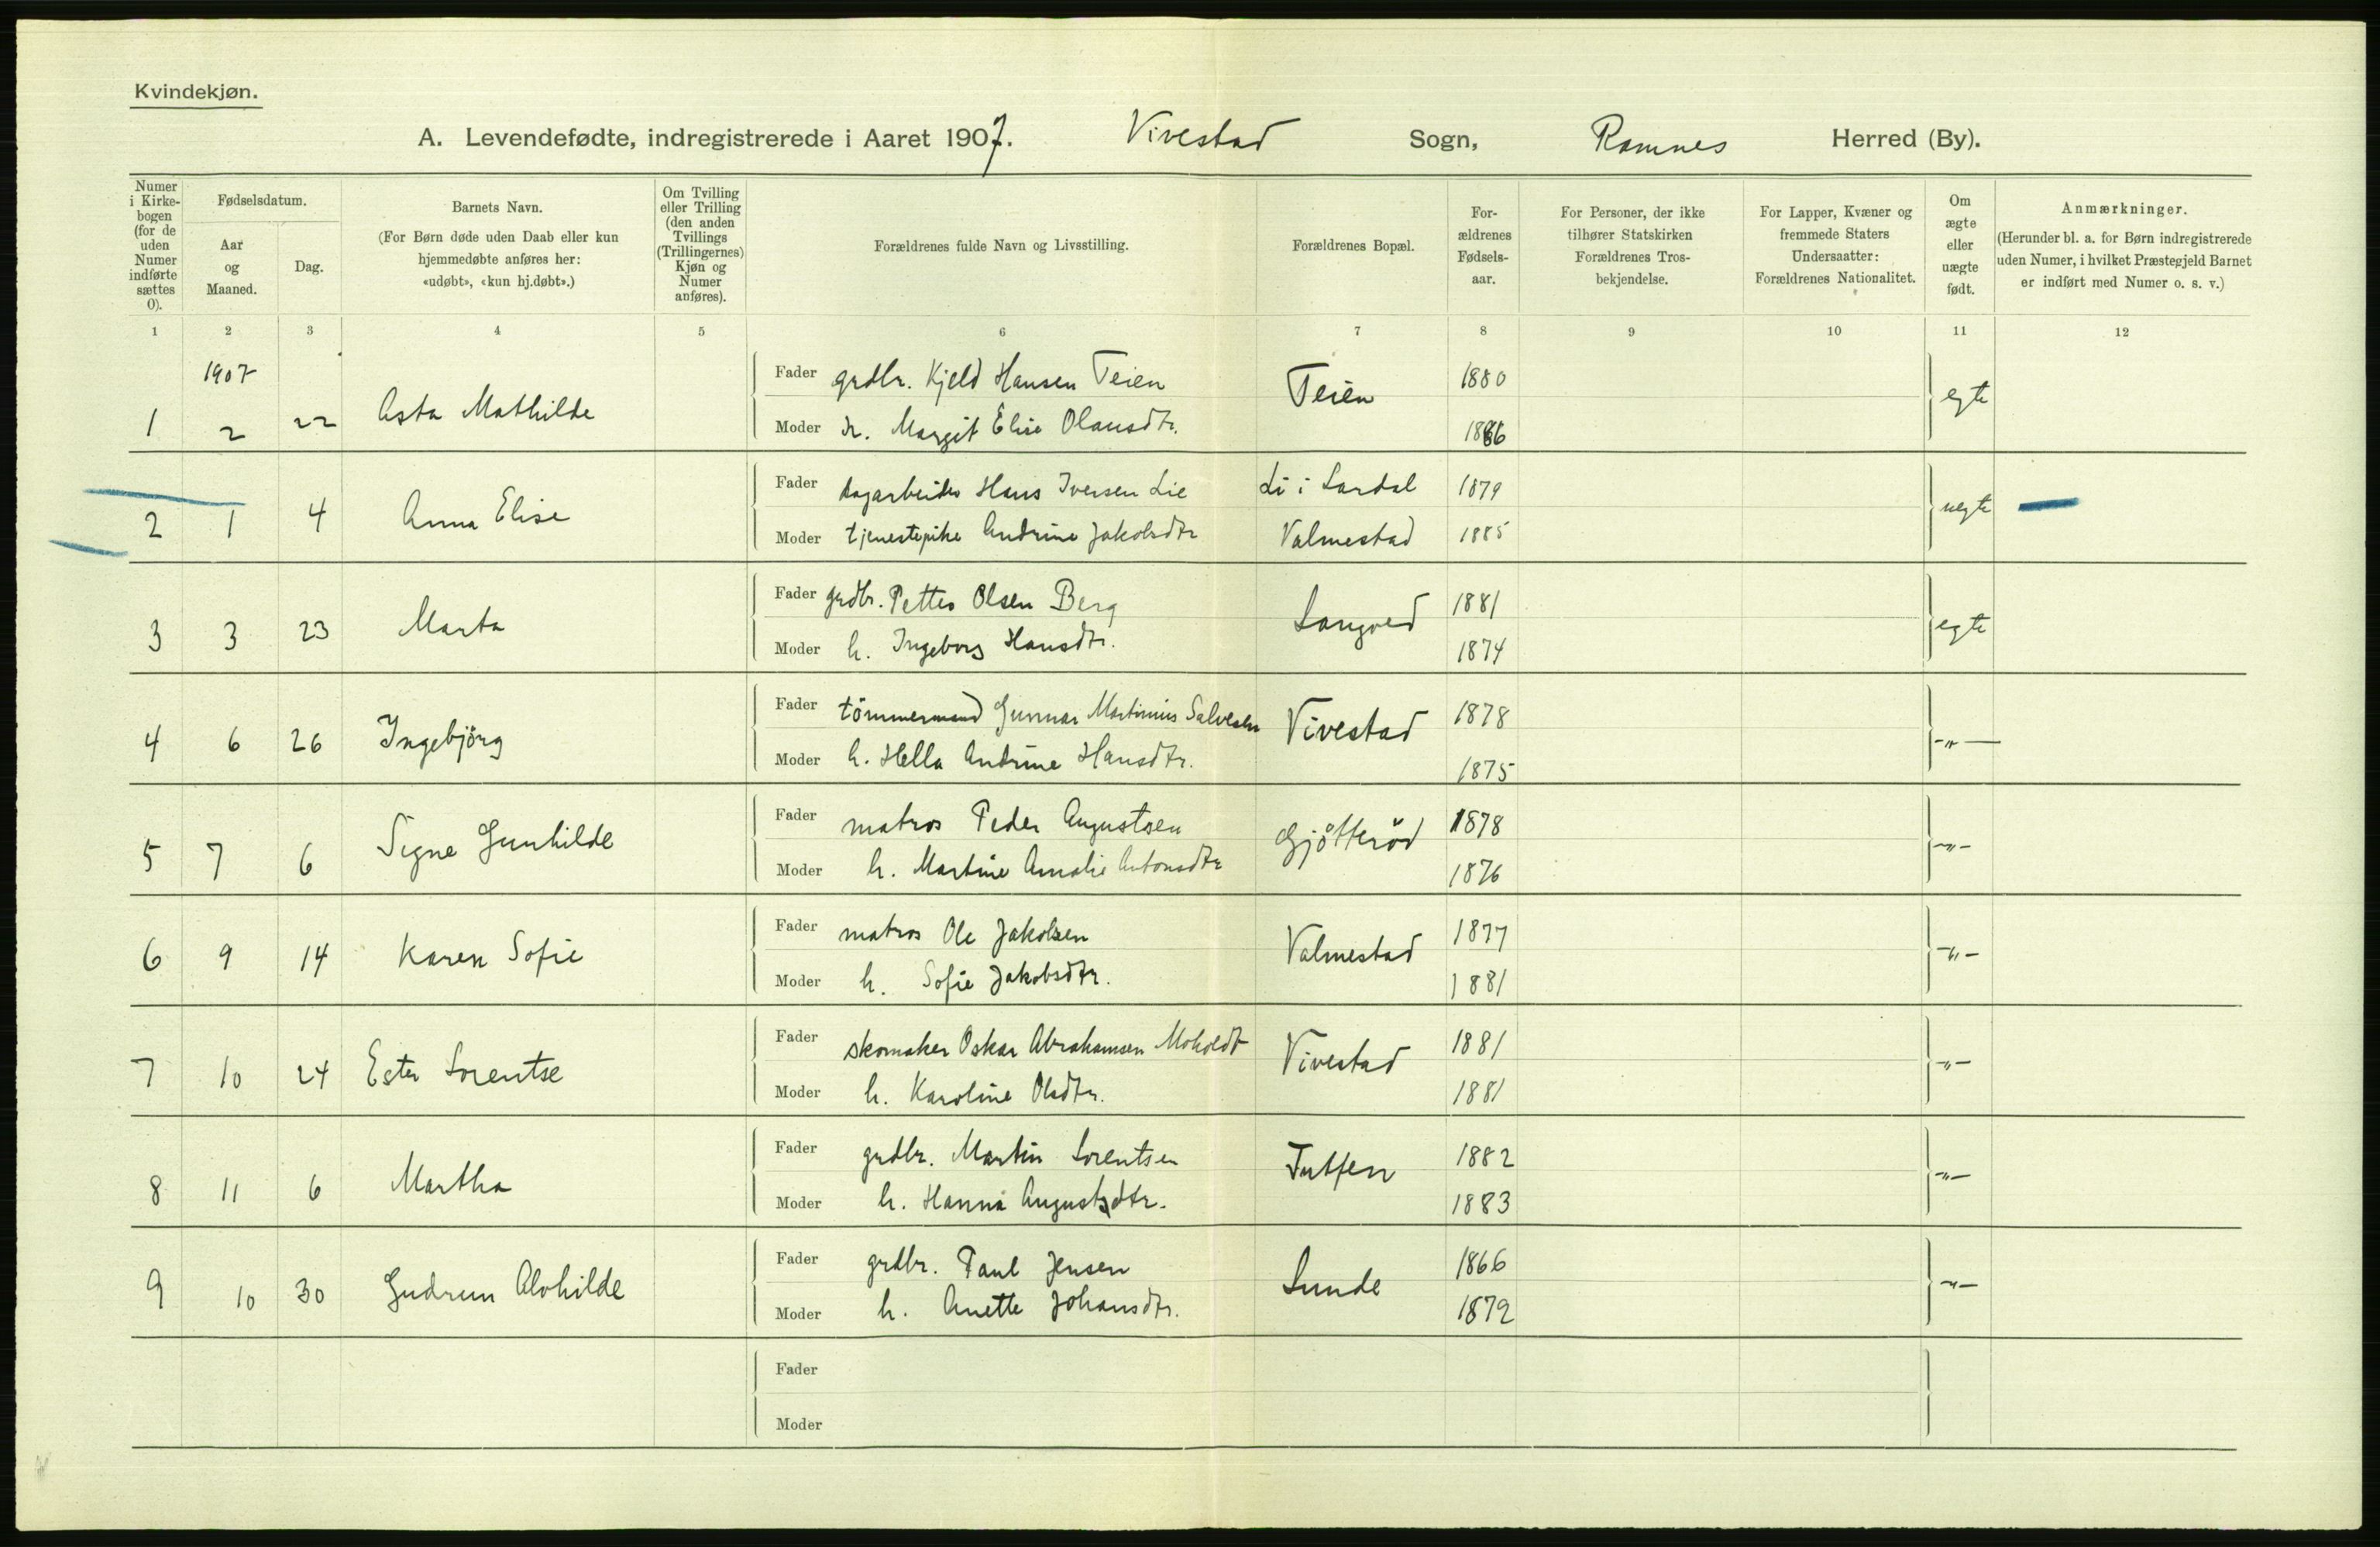 Kvindekjøn.
A. Levendefødte, indregistrerede i Aaret 1907. Vivestad Sogn, Ramnes Herred (By).
Numer i Kirkebogen (for de uden Numer indførte sættes 0).
Fødselsdatum.
Aar og Maaned.
Dag.
Barnets Navn.
(For Børn døde uden Daab eller kun hjemmedøbte anføres her: «udøbt», «kun hj.døbt».)
Om Tvilling eller Trilling (den anden Tvillings (Trillingernes) Kjøn og Numer anføres).
Forældrenes fulde Navn og Livsstilling.
Forældrenes Bopæl.
Forældrenes Fødselsaar.
For Personer, der ikke tilhører Statskirken Forældrenes Trosbekjendelse.
For Lapper, Kvæner og fremmede Staters Undersaatter: Forældrenes Nationalitet.
Om ægte eller uægte født.
Anmærkninger.
(Herunder bl. a. for Børn indregistrerede uden Numer, i hvilket Præstegjeld Barnet er indført med Numer o. s. v.)
1 2 3 4 5 6 7 8 9 10 11 12
1907
1 2 22 Asta Mathilde Fader grdbr. Kjeld Hansen Teien Teien 1880 egte
Moder h. Margit Elise Olausdtr. 1886
2 1 4 Anna Elise Fader dagarbeider Hans Iversen Lie Li i Lardal 1879 uegte
Moder tjenestepike Andrine Jakobsdtr Valmestad 1885
3 3 23 Marta Fader grdbr. Petter Olsen Berg Langved 1881 egte
Moder h. Ingeborg Hansdtr. 1874
4 6 26 Ingebjörg Fader tömmermand Gunnar Martinius Salvesen Vivestad 1878 -"-
Moder h. Hella Andrine Hansdtr. 1875
5 7 6 Signe Gunhilde Fader matros Peder Augustsen Gjötteröd 1878 -"-
Moder h. Martine Amalie Antonsdtr 1876
6 9 14 Karen Sofie Fader matros Ole Jakobsen Valmestad 1877 -"-
Moder h. Sofie Jakobsdtr. 1881
7 10 24 Ester Lorentse Fader skomaker Oskar Abrahamsen Moholdt Vivestad 1881 -"-
Moder h. Karoline Olsdtr. 1881
8 11 6 Martha Fader grdbr. Martin Lorentsen 1882 -"-
Moder h. Hanna Augustsdtr. 1883
9 10 30 Gudrun Alvhilde Fader grdbr. Paul Jensen Lunde 1866 -"-
Moder h. Anette Johansdtr. 1872
Fader
Moder